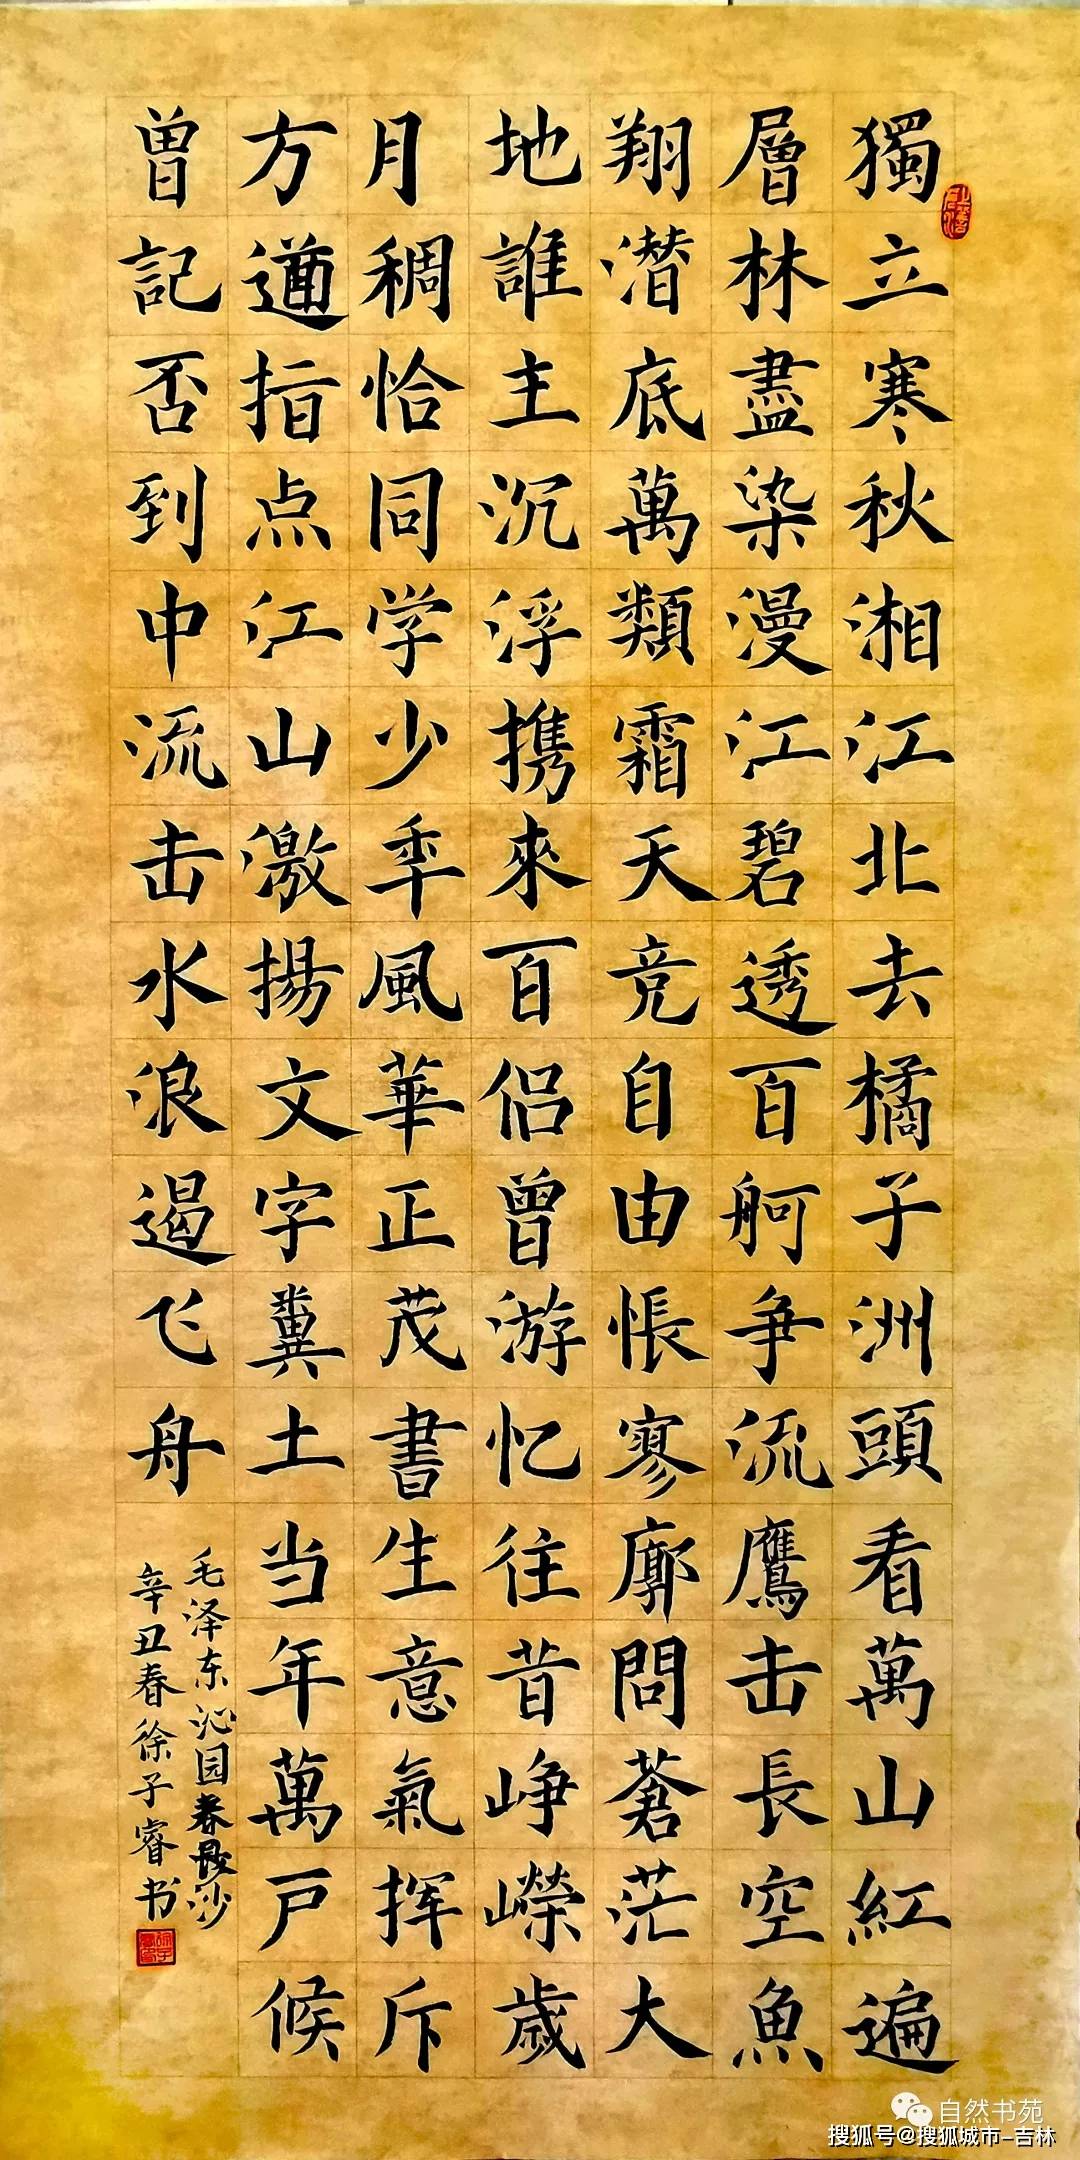 獨立寒秋湘江北去橘子洲頭看萬山紅遍
層林盡染漫江碧透百舸争流鷹击長空魚
翔潜底萬類霜天竞自由悵寥廓問蒼茫大
地誰主沉浮携來百侣曾游忆往昔峥嶸歲
月稠恰同学少秊風華正茂書生意氣挥斥
方遒指点江山激揚文字糞土当年萬户候
曾記否到中流击水浪遏飞舟
毛泽东沁园春長沙
辛丑春徐子睿书
自然书苑
搜狐号@搜狐城市-吉林